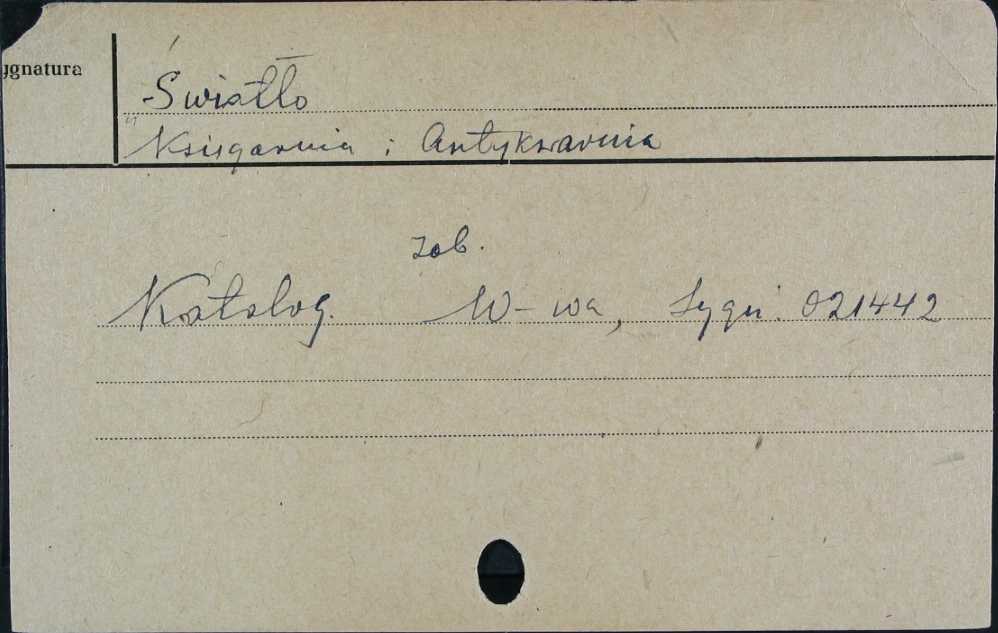 ygnatura
Światło
Księgarnia i Antykwarnia
zob.
Katalog. W-wa, Sygn. 021442